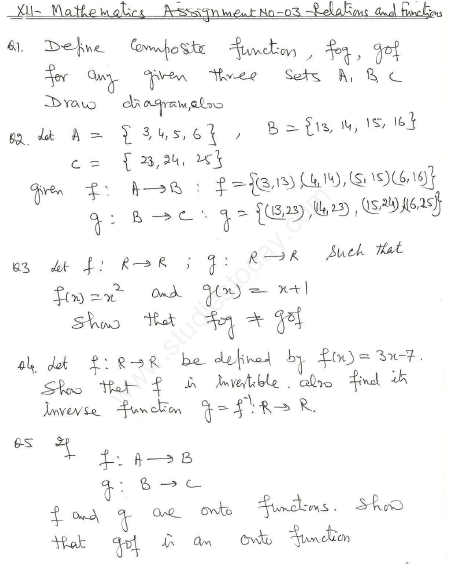 XII- Mathematics Assignment No-03-Relations and Functions
Q1. Define Composite function, fog, gof
for any given three sets A, B, C
Draw diagram, also
Q2. Let A = { 3, 4, 5, 6 } , B = {13, 14, 15, 16}
C = { 23, 24, 25}
given f: A → B : f = {(3,13) (4,14), (5,15) (6,16)}
g : B → C : g = {(13,23), (14,23), (15,24) (16,25)}
Q3 Let f : R → R ; g : R → R such that
f(x) = x² and g(x) = x+1
Show that fog ≠ gof
Q4. Let f : R → R be defined by f(x) = 3x-7.
Show that f is invertible. also find its
inverse function g = f⁻¹: R → R.
Q5 If
f : A → B
g : B → C
f and g are onto functions. Show
that gof is an onto function
www.studiestoday.com